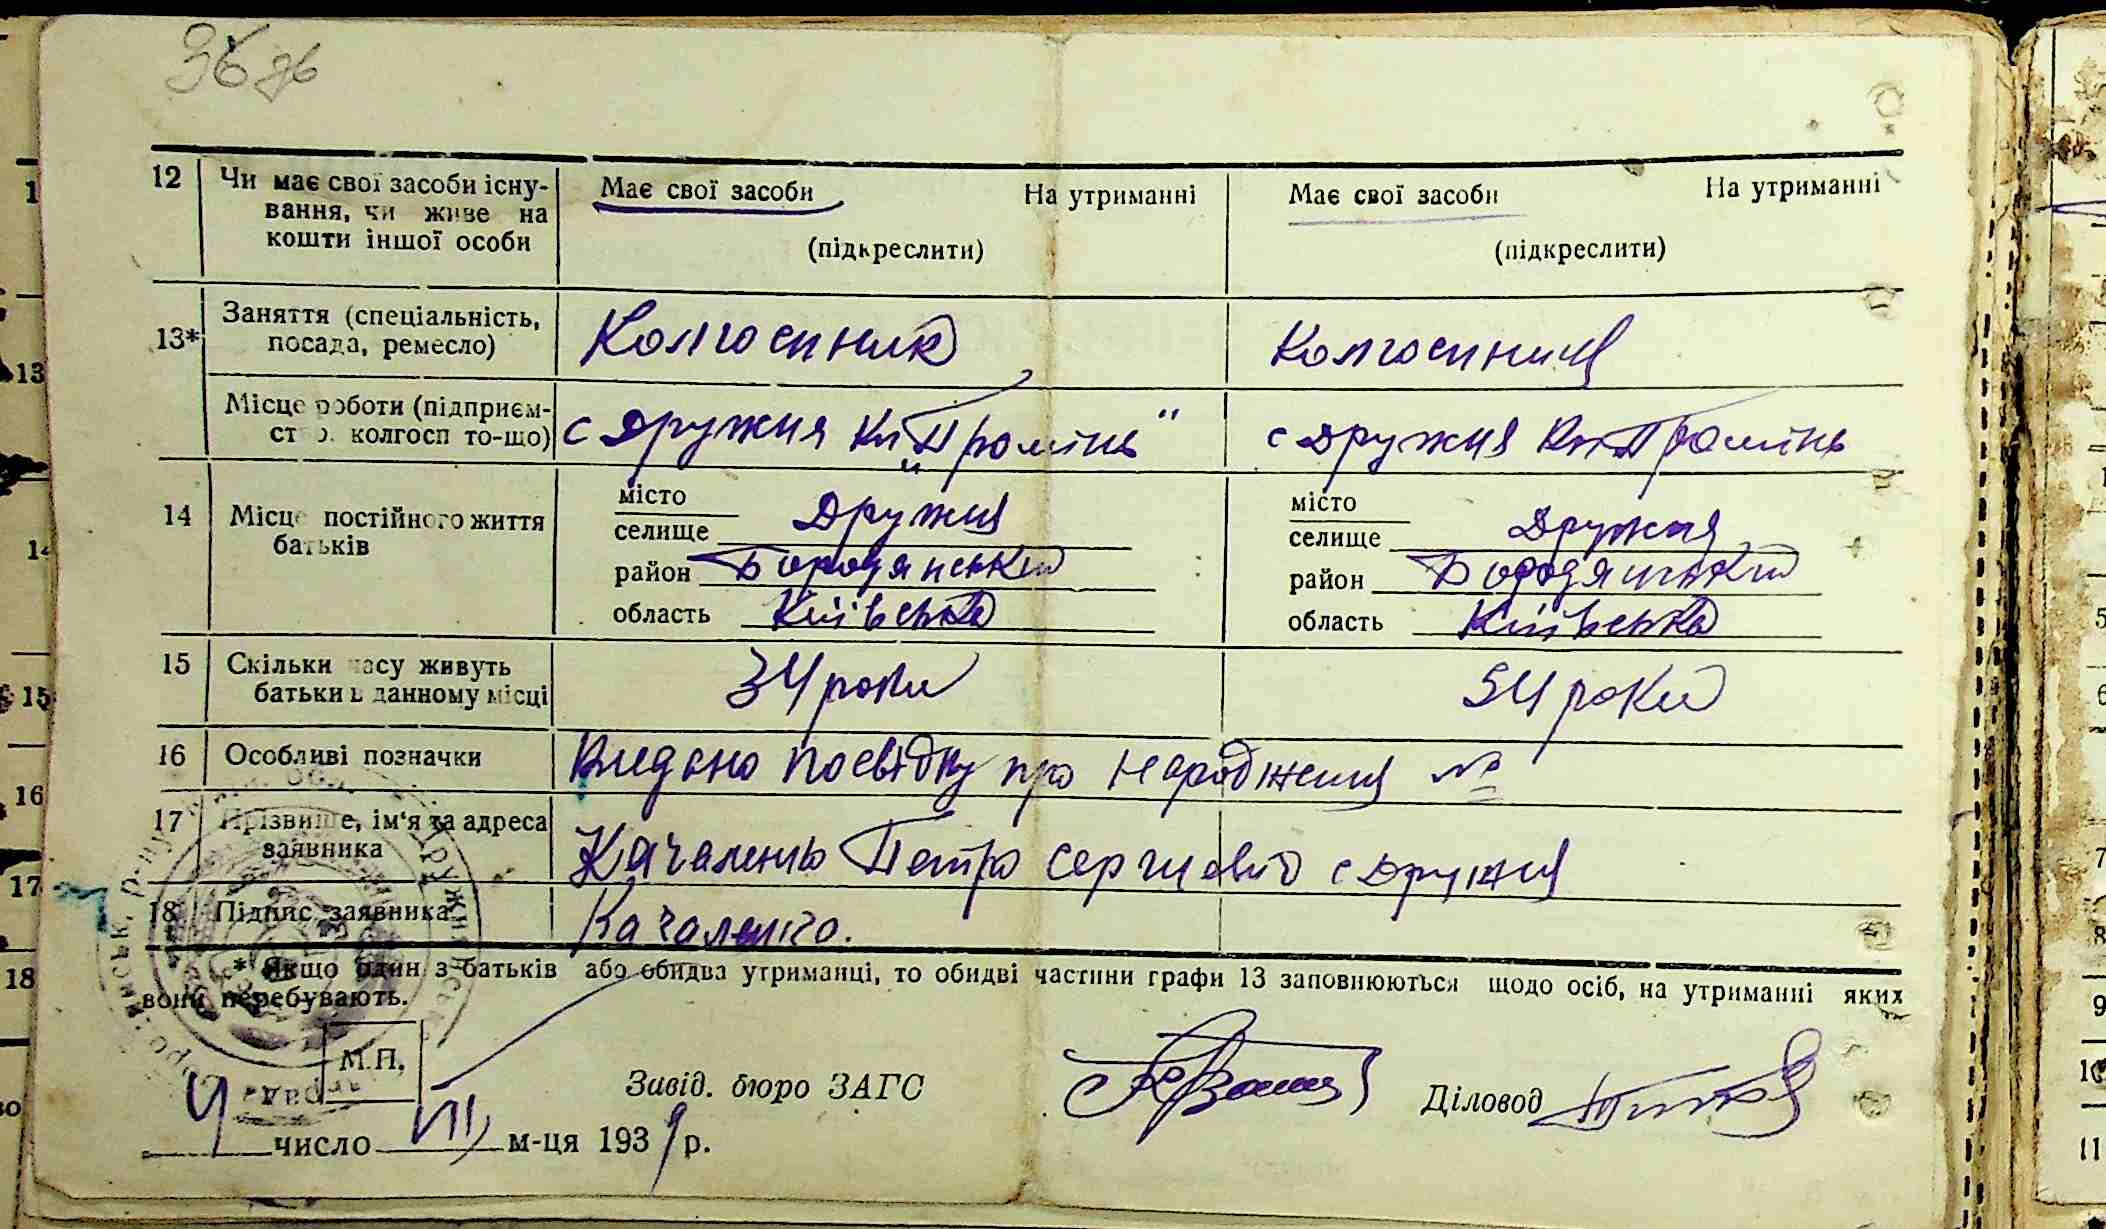 12 Чи має свої засоби існу- Має свої засоби На утриманні Має свої засоби На утриманні
вання, чи живе на
кошти іншої особи (підкреслити) (підкреслити)
13* Заняття (спеціальність, Колгоспник Колгоспниця
посада, ремесло)
Місце роботи (підприєм- с Дружня Кл „Промінь" с Дружня Кл Промінь
ство, колгосп то-що)
14 Місце постійного життя місто місто
батьків селище Дружня селище Дружня
район Бородянський район Бородянський
область Київська область Київська
15 Скільки часу живуть 34 роки 34 роки
батьки в данному місці
16 Особливі позначки Видано посвідку про народження №
17 Прізвище, ім'я та адреса Качаленко Петро Сергиович с Дружня
заявника
18 Підпис заявника Качаленко.
* Якщо один з батьків або обидва утриманці, то обидві частини графи 13 заповнюються щодо осіб, на утриманні яких
вони перебувають.
М.П.
Завід. бюро ЗАГС Діловод
4 число VIII м-ця 1939 р.